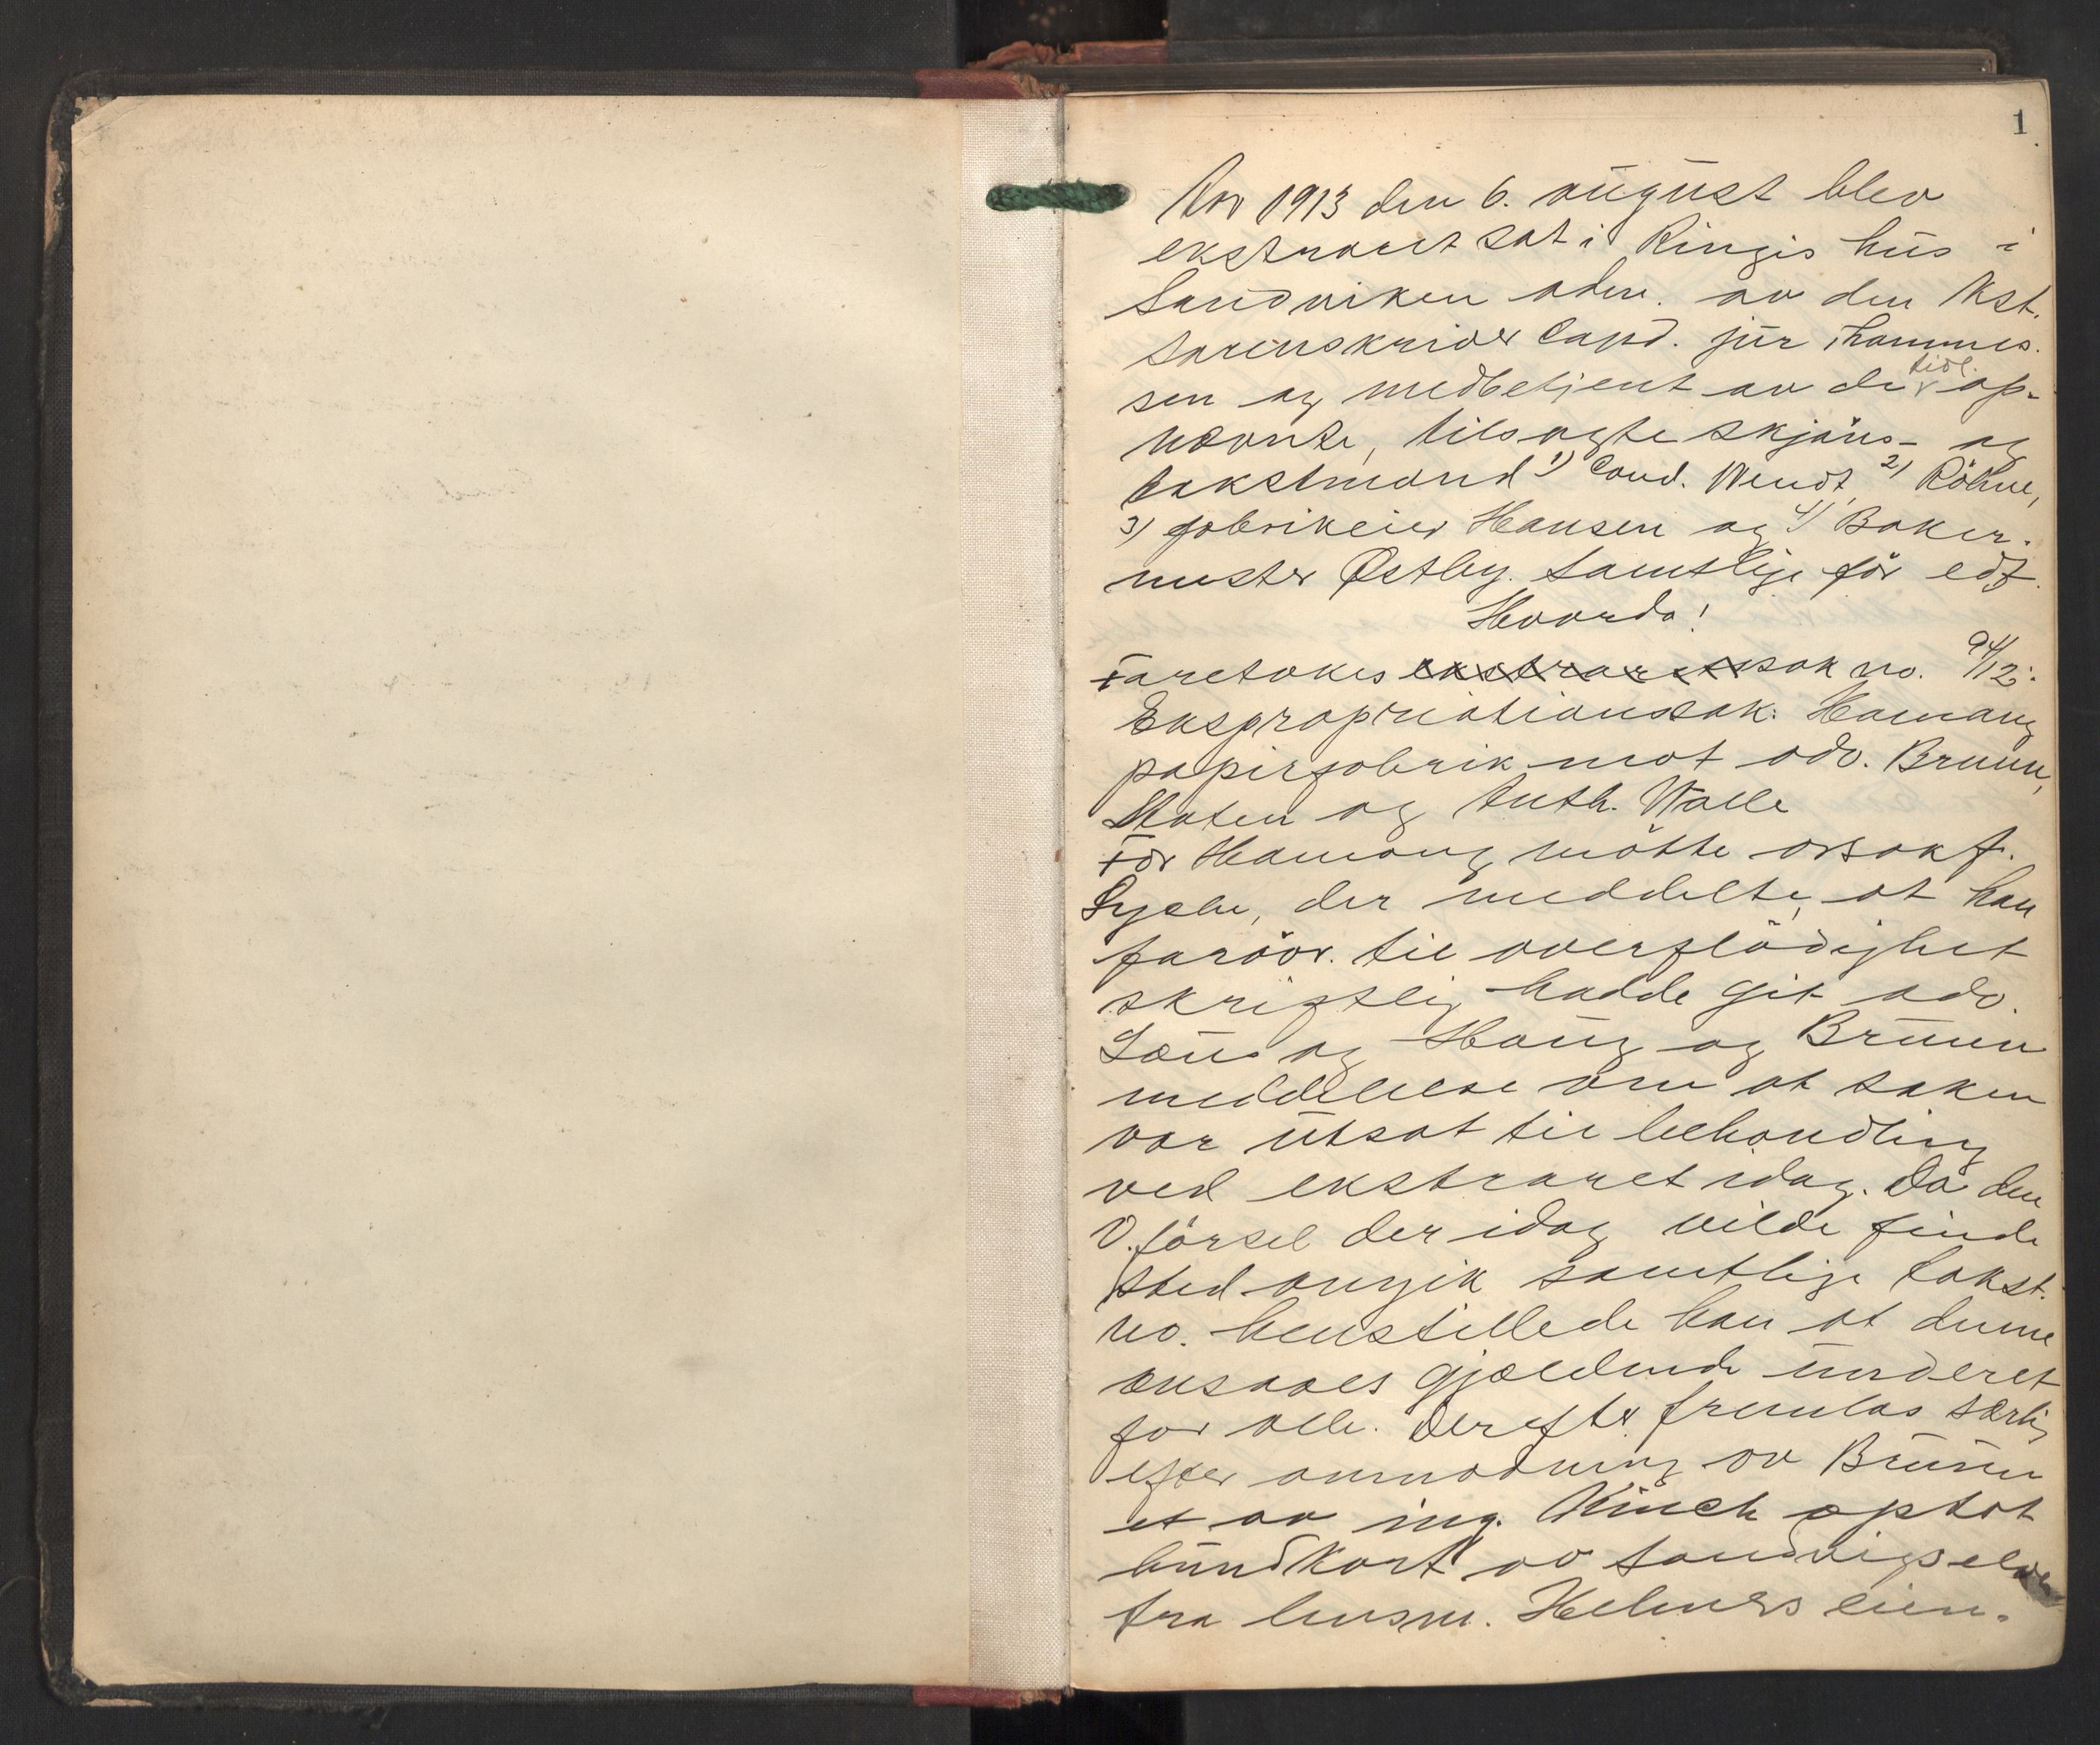 1
Aar 1913 den 6. august blev
ekstraret sat i Ringis hus i
Sandviken adm. av den kst.
sorenskriver Cand. jur Thommes-
sen og medbetjent av de tidl. op-
nævnte, tilsagte skjöns- og
takstmænd 1) Cand. Wendt, 2) Röhne,
3) fabrikeier Hansen og 4) Baker-
mester Østby. Samtlige før edf.
Hvorda!
Foretokes ekstraretssak no. 94/12:
Ekspropriationssak: Hamang
papirfabrik mot adv. Bruun,
Staten og Anth. Walle
For Hamang mötte orsakf.
der meddelte, at han
foröv. til overflödighet
skriftlig hadde git adv.
og Haug og Bruun
meddelelse om at saken
var utsat til behandling
ved ekstraret idag. Da den
O.försel der idag vilde finde
sted angik samtlige takst-
no. henstillede han at denne
ansaaes gjældende underet
for alle. Derefter fremlas særlig
efter anmodning av Bruun
et av ing. Kinch optat
bundkart av Sandvigselven
fra lensm. Helmers eien-